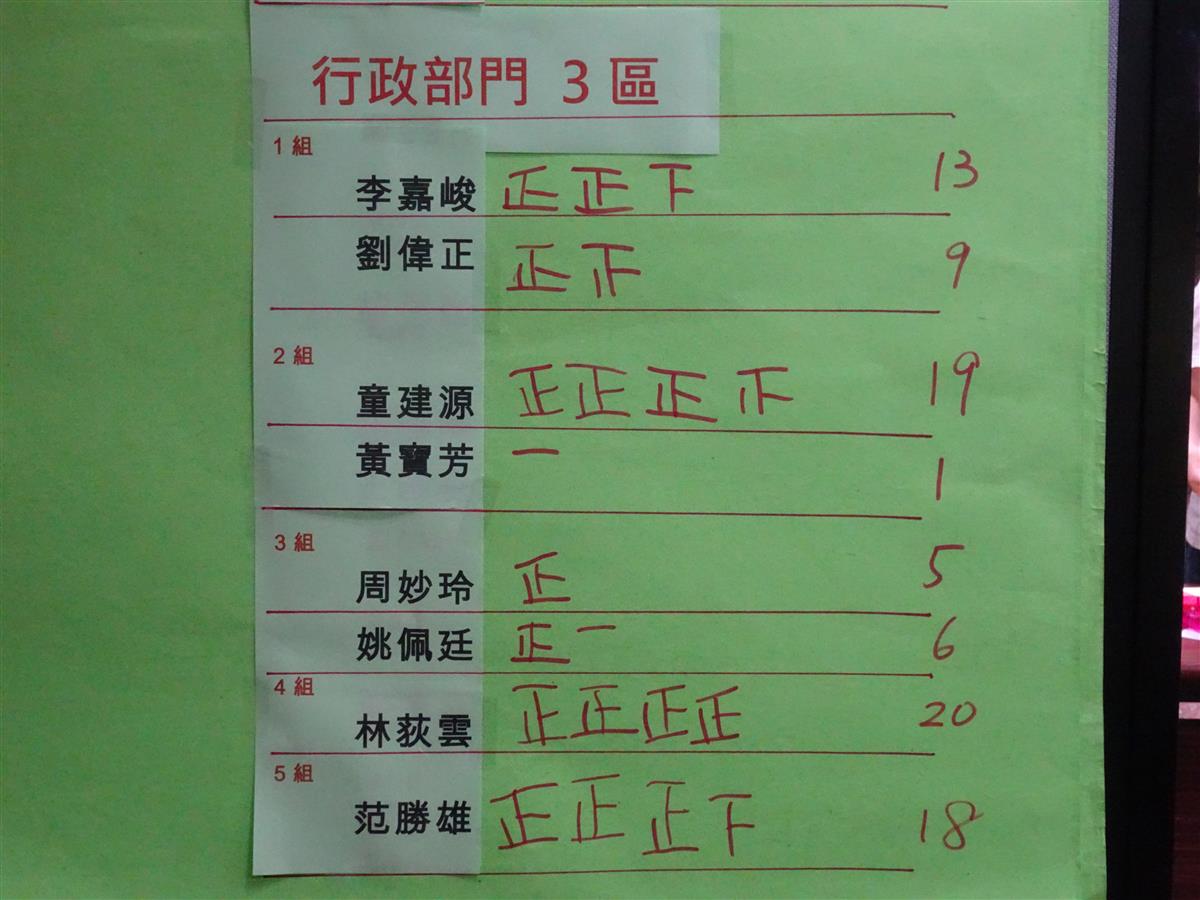 行政部門 3 區
1 組
李嘉峻 正正下 13
劉偉正 正正 9
2 組
童建源 正正正正 19
黃寶芳 一 1
3 組
周妙玲 正 5
姚佩廷 正一 6
4 組
林荻雲 正正正正 20
5 組
范勝雄 正正正下 18